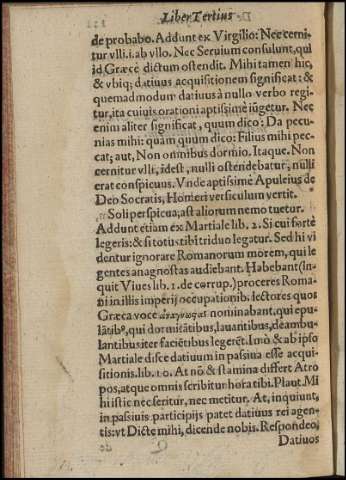 Liber Tertius
de probabo. Addunt ex Virgilio: Nec cerni-
tur vlli. i. ab vllo. Nec Seruium consulunt, qui
id Græce dictum ostendit. Mihi tamen hic,
& vbiq; datiuus acquisitionem significat: &
quemadmodum datiuus à nullo verbo regi-
tur, ita cuiuis orationi aptissimè iūgetur. Nec
enim aliter significat, quum dico: Da pecu-
nias mihi: quàm quum dico: Filius mihi pec-
cat; aut, Non omnibus dormio. Itaque. Non
cernitur vlli, idest, nulli ostendebatur, nulli
erat conspicuus. Vnde aptissimè Apuleius de
Deo Socratis, Homeri versiculum vertit.
Soli perspicua, ast aliorum nemo tuetur.
Addunt etiam ex Martiale lib. 2. Si cui fortè
legeris: & si totus tibi triduo legatur. Sed hi vi
dentur ignorare Romanorum morem, qui le
gentes anagnostas audiebant. Habebant (in-
quit Viues lib. 1. de corrup.) proceres Roma-
ni in illis imperij occupationib. lectores quos
Græca voce ἀναγνώςας nominabant, qui epu-
lātibᵒ, qui dormitātibus, lauantibus, deambu-
lantibus iter faciētibus legerēt. Imò & ab ipso
Martiale disce datiuum in passiua esse acqui-
sitionis. lib. 10. At nō & stamina differt Atro
pos, atque omnis scribitur hora tibi. Plaut. Mi
hi istic nec seritur, nec metitur. At, inquiunt,
in passiuis participijs patet datiuus rei agen-
tis: vt Dicte mihi, dicende nobis. Respondeo,
Datiuos